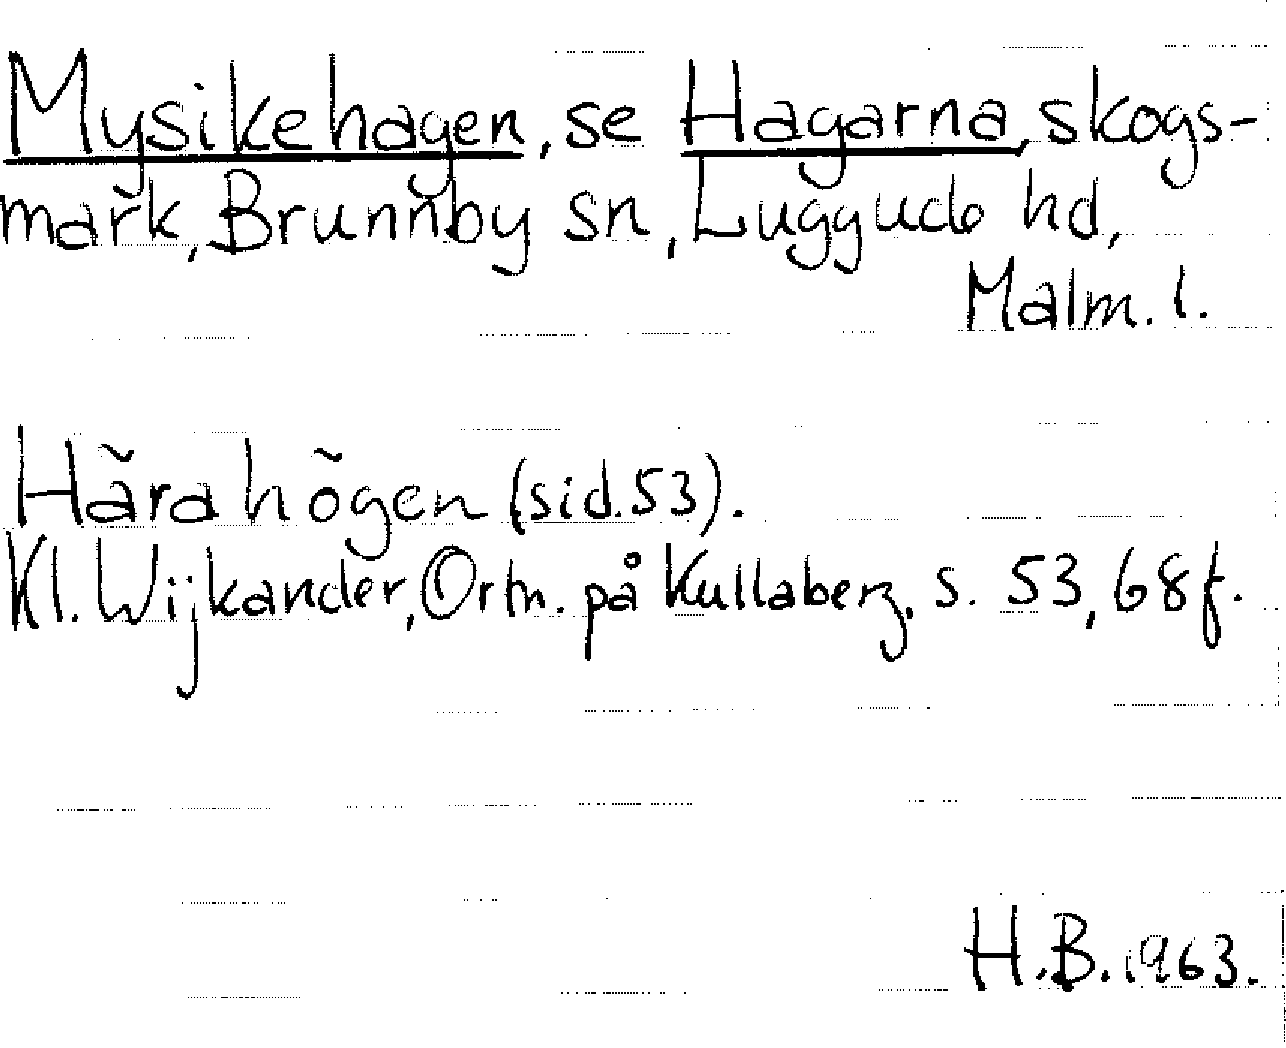 Mysikehagen, se Hagarna, skogs-
mark, Brunnby sn, Luggude hd,
Malm. l.
Hãra hõgen (sid. 53).
Kl. Wijkander, Ortn. på Kullaberg, s. 53, 68 f.
H.B. 1963.